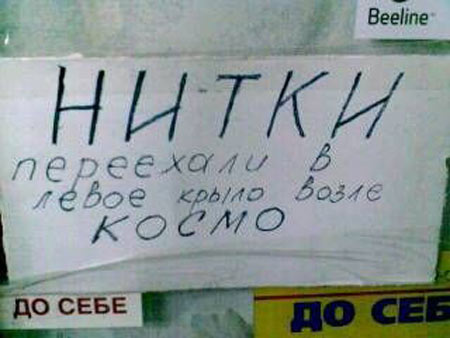 Beeline
НИТКИ
переехали в
левое крыло возле
КОСМО
ДО СЕБЕ
ДО СЕБ